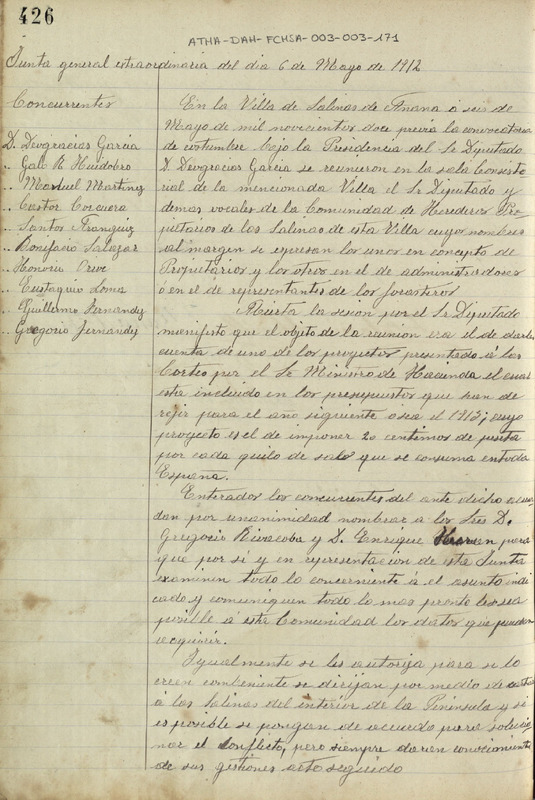 426
ATHA-DAH-FCHSA-003-003-171
Junta general extraordinaria del dia 6 de Mayo de 1912
Concurrentes
D. Deogracias Garcia
.. Galo R. Huidobro
.. Manuel Martinez
.. Castor Corcuera
.. Santos Frangüiz
.. Bonifacio Salazar
.. Honorio Orive
.. Eustaquio Loma
.. Guillermo Fernandez
Gregorio Fernandez
En la Villa de Salinas de Añana á seis de
Mayo de mil novecientos doce previa la convocatoria
de costumbre bajo la Presidencia del Sr Diputado
D. Deogracias Garcia se reunieron en la sala Consisto
rial de la mencionada Villa el Sr Diputado y
demas vocales de la Comunidad de Herederos Pro
pietarios de las Salinas de esta Villa cuyos nombres
al margen se espresan los unos en concepto de
Propietarios y los otros en el de administradores
ó en el de representantes de los forasteros
Abierta la sesion por el Sr Diputado
manifestó que el objeto de la reunion era el de darles
cuenta de uno de los proyectos presentado á las
Cortes por el Sr Ministro de Hacienda el cual
está incluido en los presupuestos que han de
rejir para el año siguiente o sea el 1913; cuyo
proyecto es el de imponer 20 centimos de peseta
por cada quilo de sal que se consuma en toda
España.
Enterados los concurrentes del ante dicho acuer
dan por unanimidad nombrar a los Sres D.
Gregorio Rivacoba y D. Enrique para
que por sí y en representacion de esta Junta
examinen todo lo concerniente á el asunto indi
cado y comuniquen todo lo mas pronto les sea
posible a esta Comunidad los datos que puedan
adquirir.
Igualmente se les autoriza para si lo
creen combeniente se dirijan por medio de cartas
á las Salinas del interior de la Peninsula y si
es posible se pongan de acuerdo para solucio
nar el conflicto, pero siempre daran conocimiento
de sus gestiones acto seguido